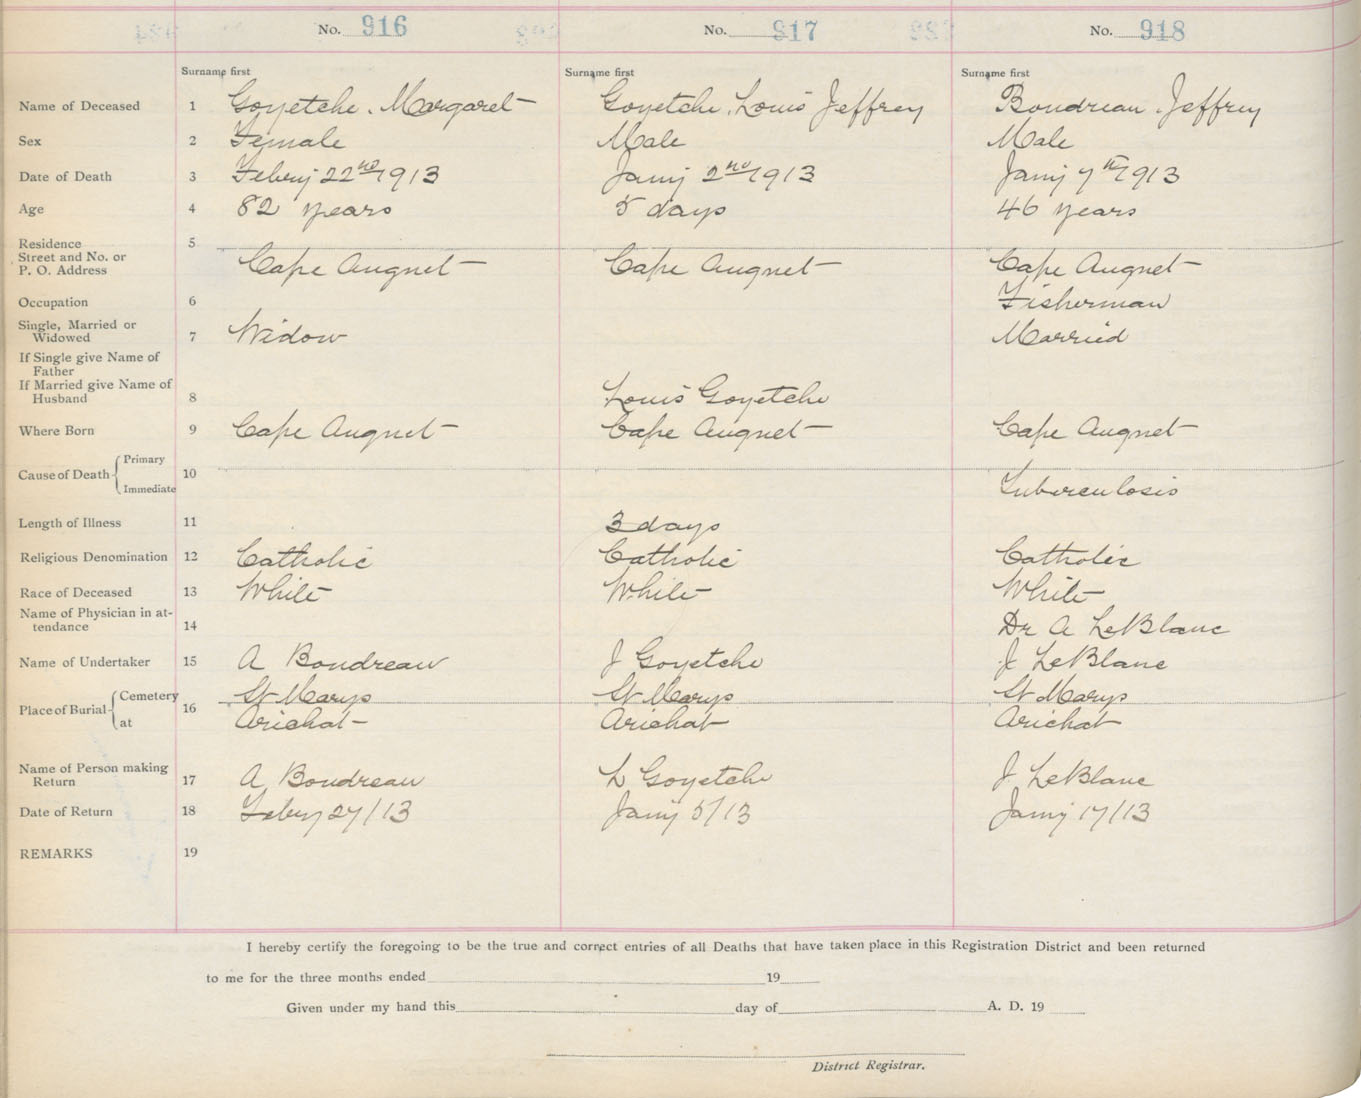 No. 916 No. 917 No. 918
Surname first Surname first Surname first
Name of Deceased 1 Goyetche, Margaret Goyetche, Louis Jeffrey Boudreau, Jeffrey
Sex 2 Female Male Male
Date of Death 3 Feby 22nd 1913 Jany 2nd 1913 Jany 7th 1913
Age 4 82 years 5 days 46 years
Residence 5
Street and No. or
P. O. Address Cape Auguet Cape Auguet Cape Auguet
Occupation 6 Fisherman
Single, Married or
Widowed 7 Widow Married
If Single give Name of
Father
If Married give Name of
Husband 8 Louis Goyetche
Where Born 9 Cape Auguet Cape Auguet Cape Auguet
Primary
Cause of Death 10
Immediate Tuberculosis
Length of Illness 11 3 days
Religious Denomination 12 Catholic Catholic Catholic
Race of Deceased 13 White White White
Name of Physician in at-
tendance 14 Dr A LeBlanc
Name of Undertaker 15 A Boudreau J Goyetche J LeBlanc
Cemetery St Marys St Marys St Marys
Place of Burial 16
at Arichat Arichat Arichat
Name of Person making
Return 17 A Boudreau L Goyetche J LeBlanc
Date of Return 18 Feby 27/13 Jany 5/13 Jany 17/13
REMARKS 19
I hereby certify the foregoing to be the true and correct entries of all Deaths that have taken place in this Registration District and been returned
to me for the three months ended 19
Given under my hand this day of A. D. 19
District Registrar.